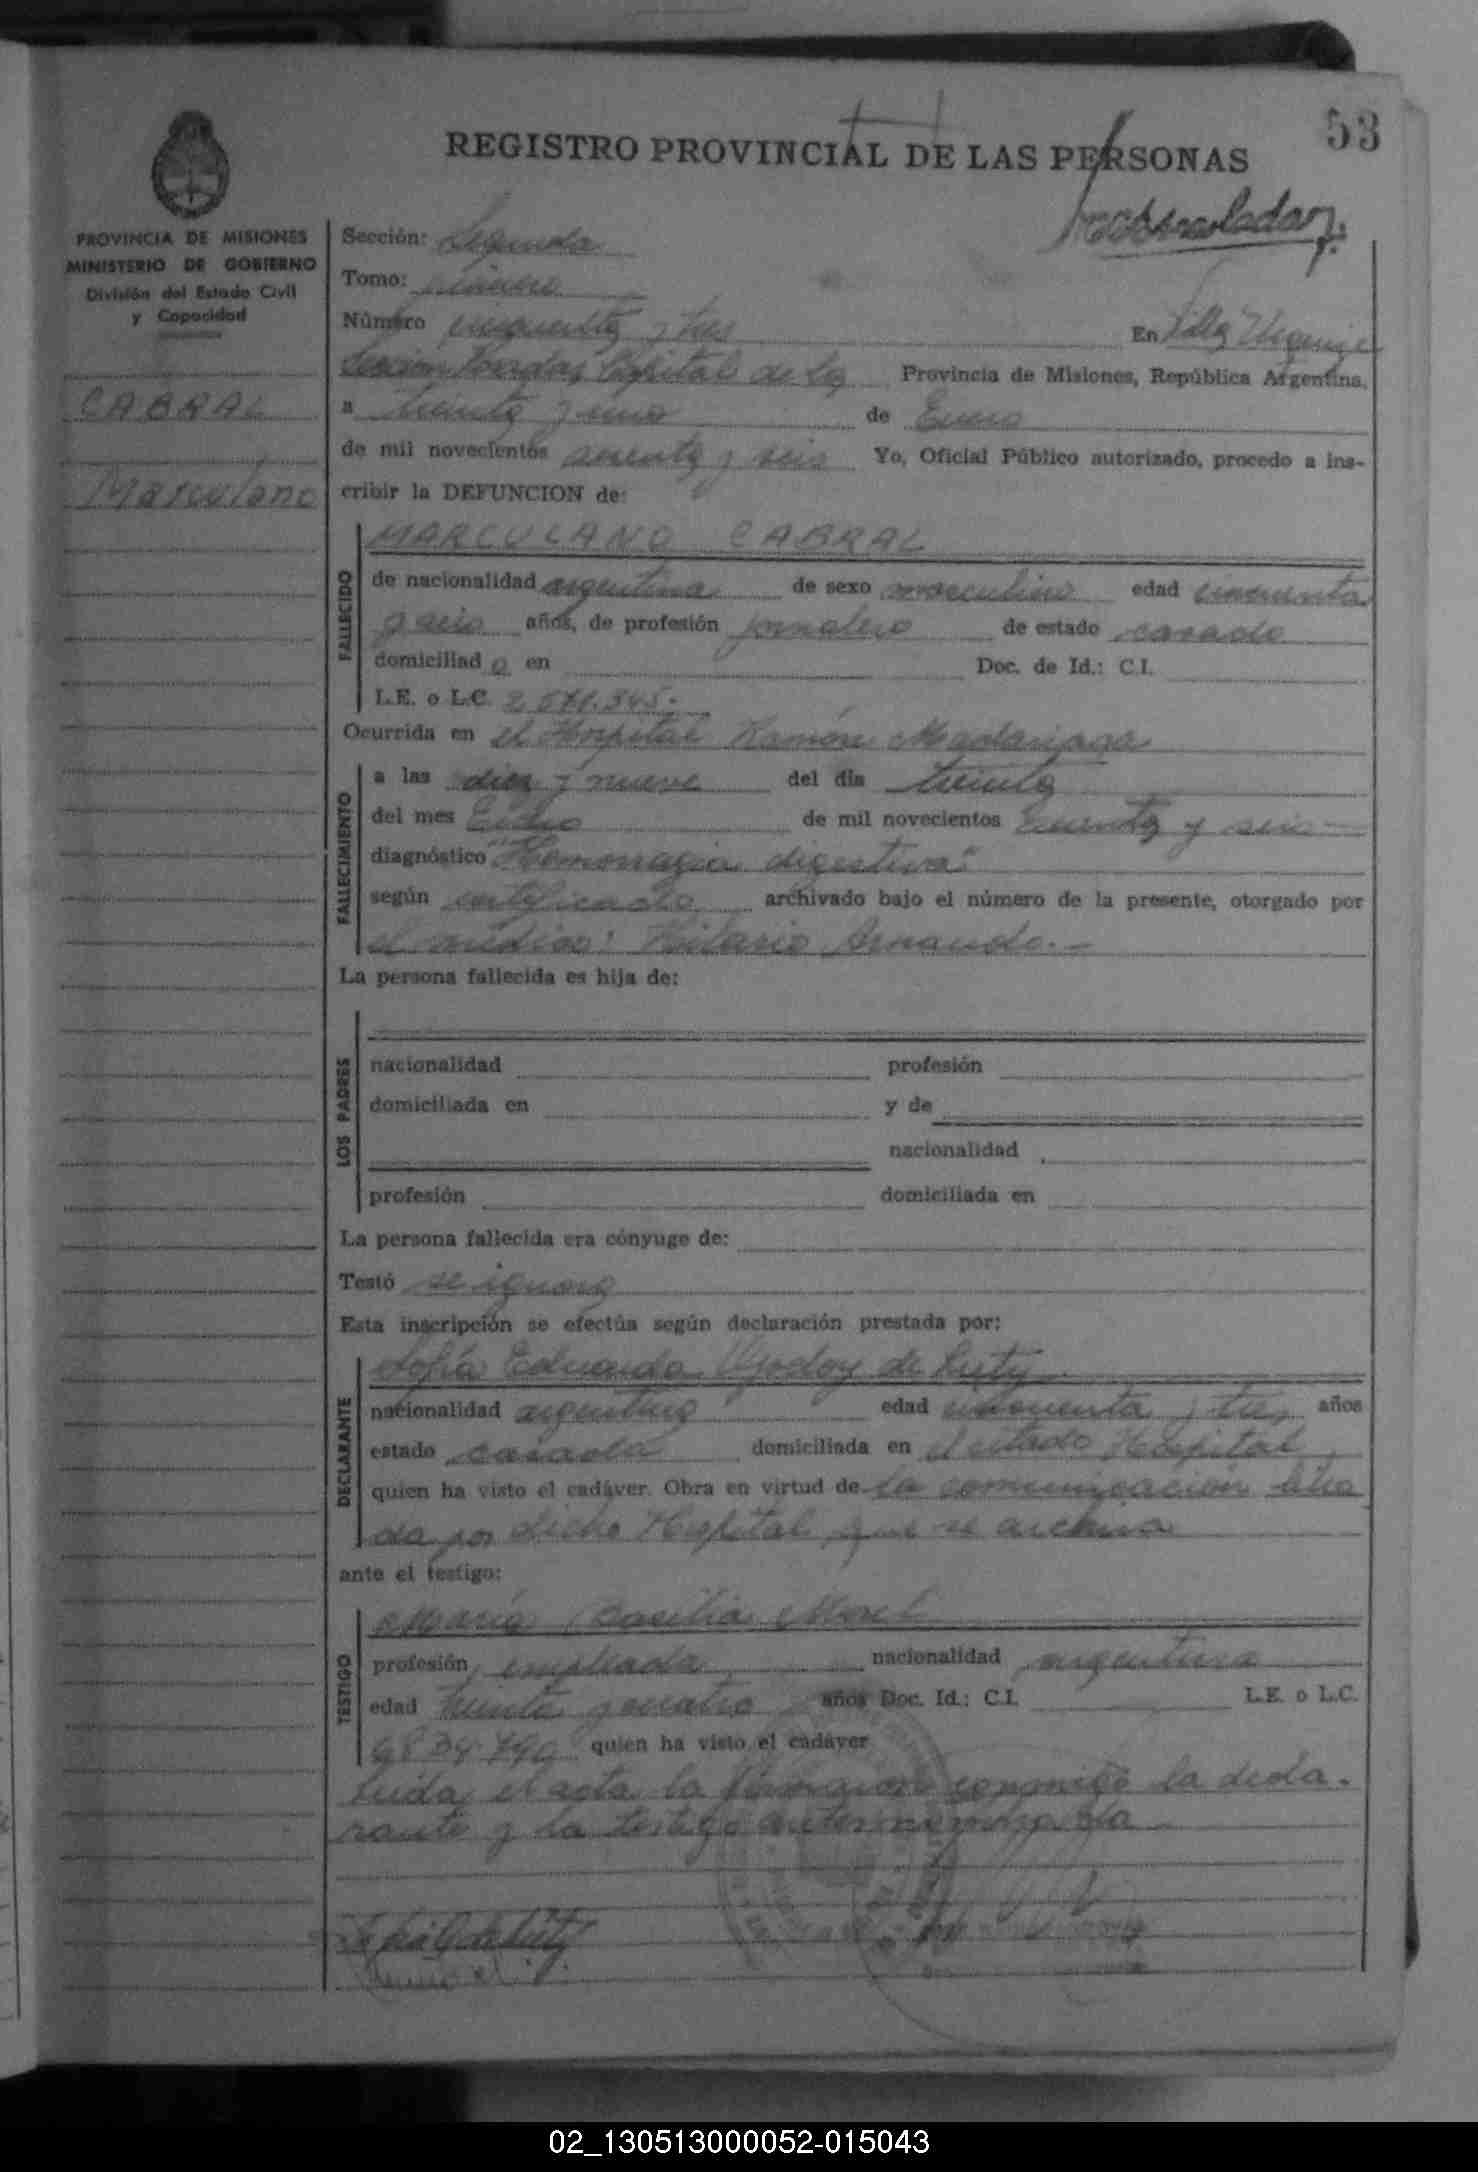 53
REGISTRO PROVINCIAL DE LAS PERSONAS
PROVINCIA DE MISIONES
MINISTERIO DE GOBIERNO
División del Estado Civil
y Capacidad
CABRAL
Marculano
Sección: Segunda
Tomo: primero
Número cincuenta y tres En Villa Urquiza
Sección Posadas Capital de la Provincia de Misiones, República Argentina,
a treinta y uno de Enero
de mil novecientos setenta y seis Yo, Oficial Público autorizado, procedo a ins-
cribir la DEFUNCION de:
FALLECIDO
MARCULANO CABRAL
de nacionalidad argentina de sexo masculino edad cincuenta
y seis años, de profesión jornalero de estado casado
domiciliad o en Doc. de Id.: C.I.
L.E. o L.C.
Ocurrida en el Hospital Ramón Madariaga
FALLECIMIENTO
a las diez y nueve del día treinta
del mes Enero de mil novecientos setenta y seis
diagnóstico "Hemorragia digestiva"
según certificado archivado bajo el número de la presente, otorgado por
el médico: Hilario Arnaudo.-
La persona fallecida es hija de:
LOS PADRES
nacionalidad profesión
domiciliada en y de
nacionalidad
profesión domiciliada en
La persona fallecida era cónyuge de:
Testó se ignora
Esta inscripción se efectúa según declaración prestada por:
DECLARANTE
Sofía Eduarda Godoy de
nacionalidad argentina edad cincuenta y tres años
estado casada domiciliada en el citado Hospital
quien ha visto el cadáver. Obra en virtud de la comunicación
da por dicho Hospital que se archiva
ante el testigo:
TESTIGO
María Basilia Morel
profesión empleada nacionalidad argentina
edad treinta y cuatro años Doc. Id.: C.I. L.E. o L.C.
quien ha visto el cadáver
Leida el acta la firmaron conmigo la decla-
rante y la testigo antes nombrada
02_130513000052-015043